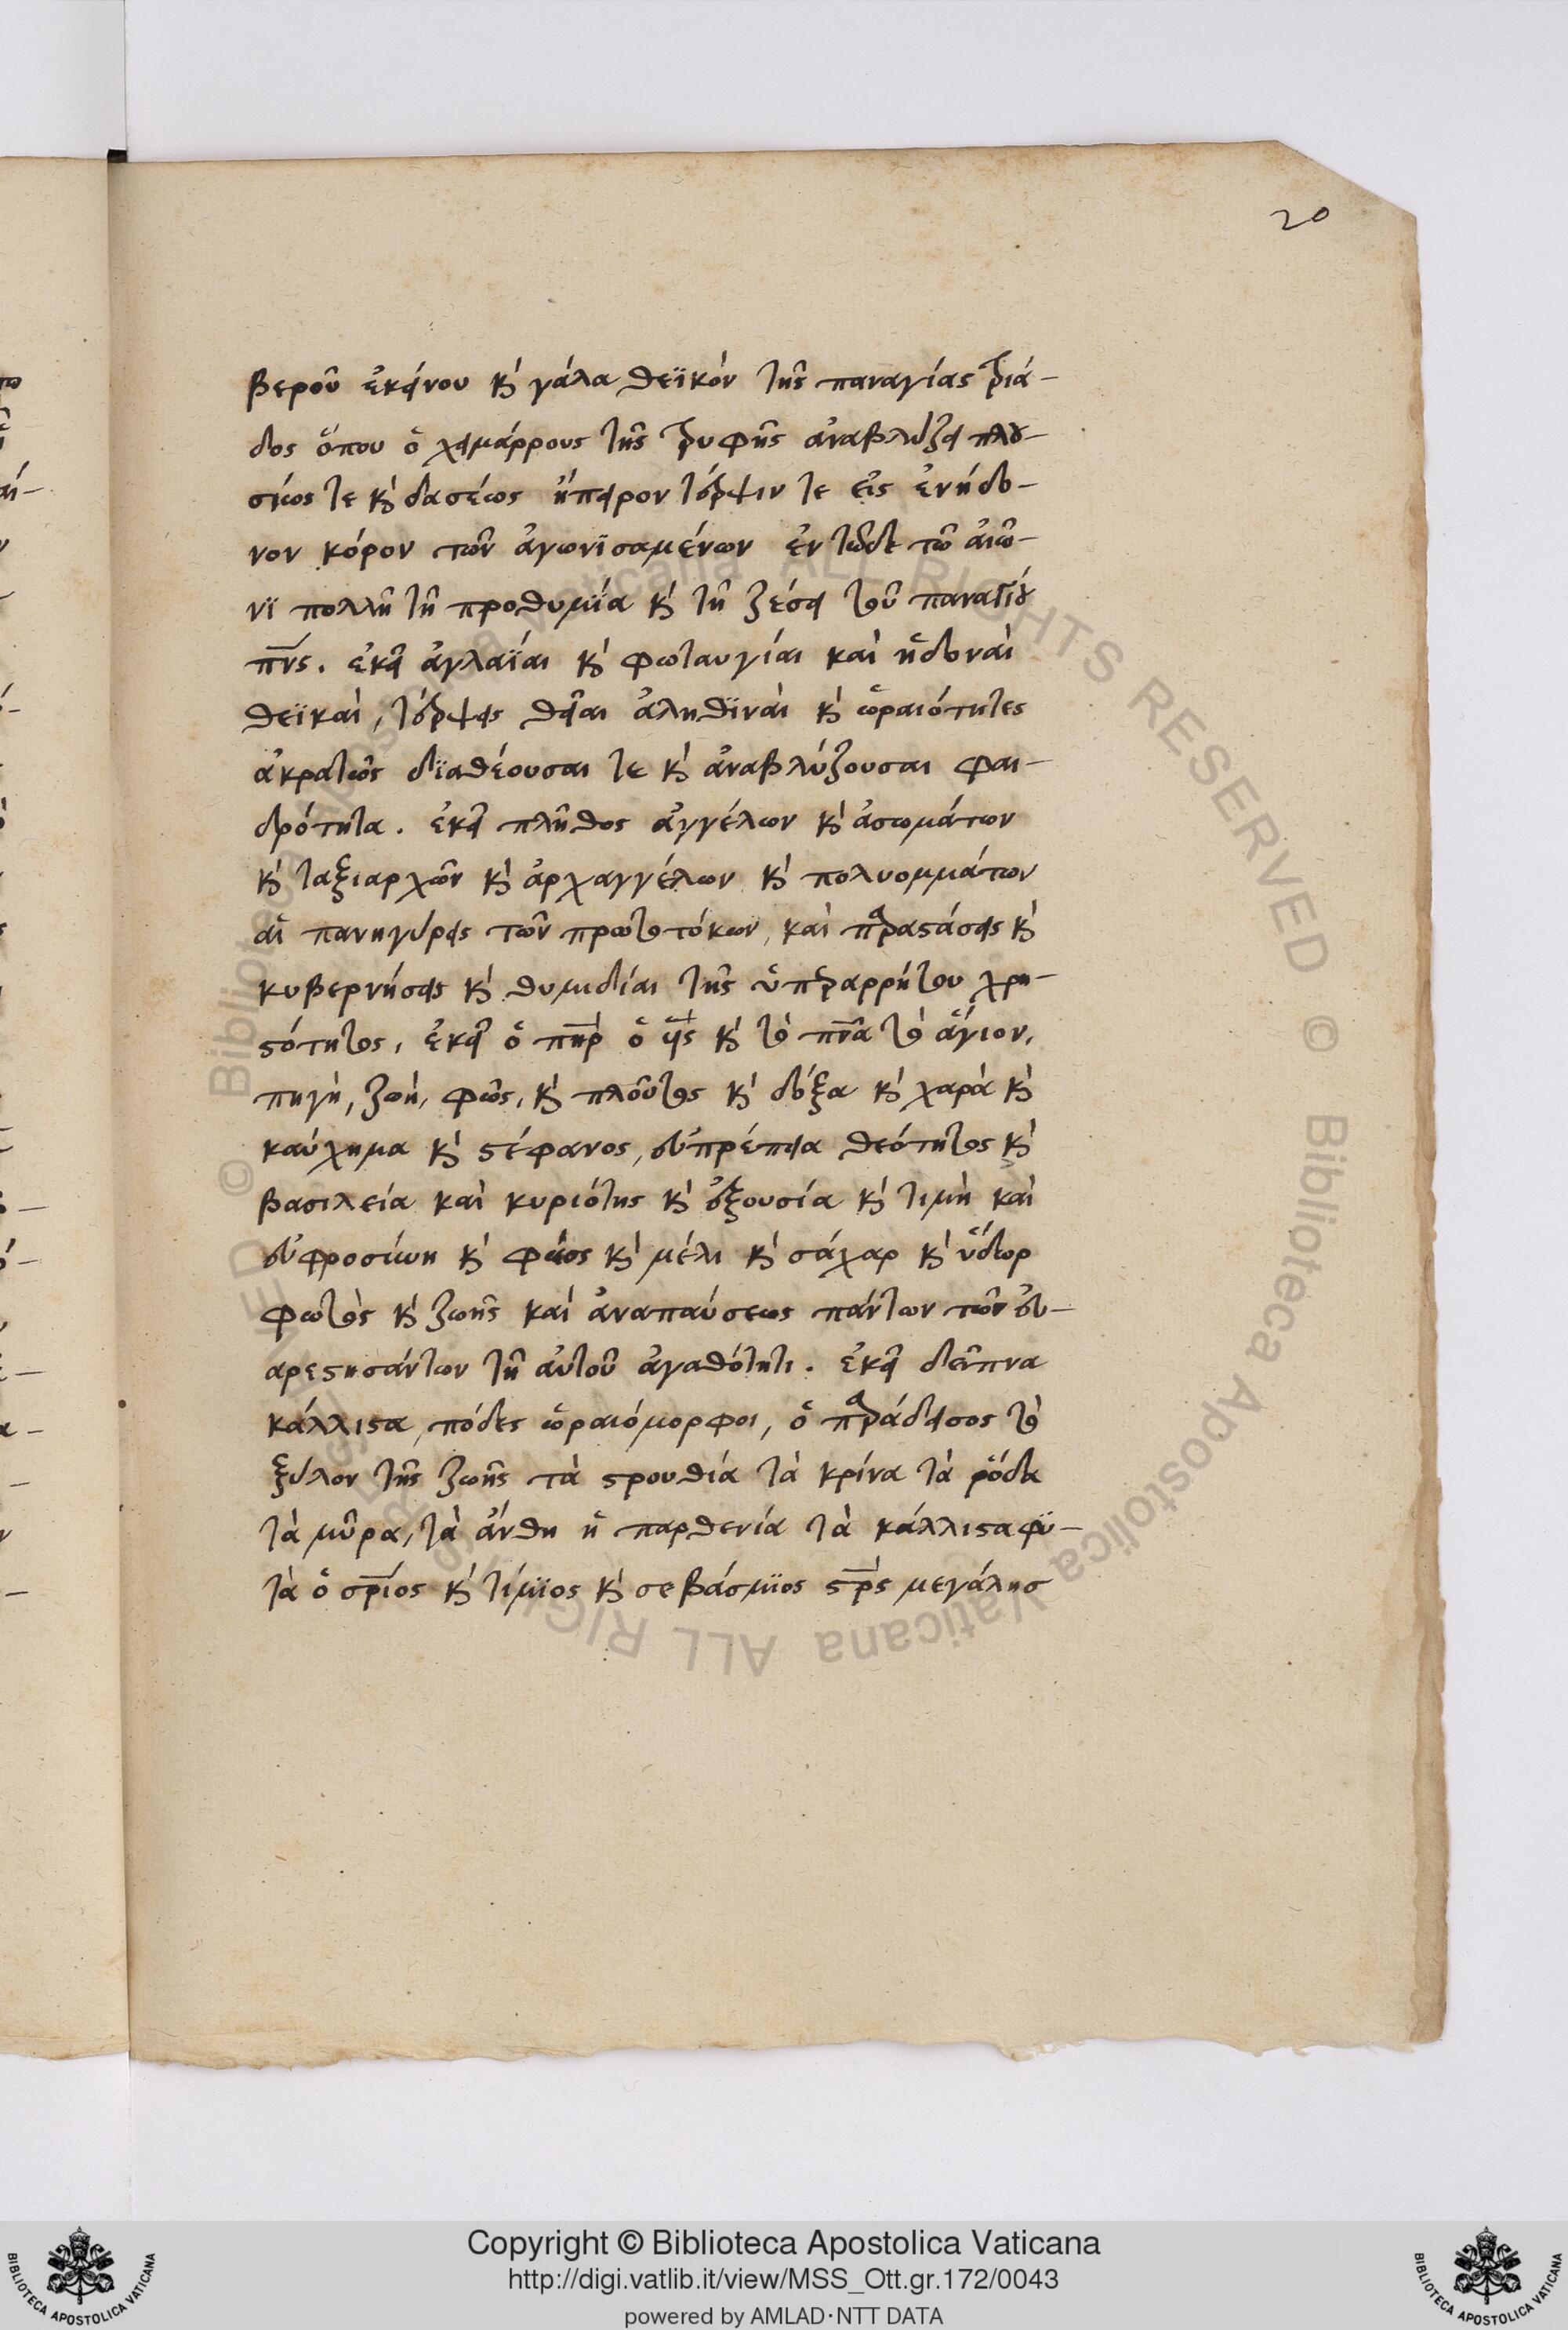 20
βεροῦ ἐκείνου κ̀ γάλα θεϊκόν τῆς παναγίας τριά-
δος ὅπου ὁ χειμάρρους τῆς τρυφῆς ἀναβλύζει πλου-
σίως τε κ̀ δασέως ἤπειρον τέρψιν τε εἰς ἐνήδο-
νον κόρον τῶν ἀγωνϊσαμένων ἐν τῶδε τῶ αἰῶ-
νϊ πολλῆ τῆ προθυμΐα κ̀ τῆ ζέσει τοῦ παναγίου
πν̅ς. ἐκεῖ ἀγλαΐαι κ̀ φωταυγίαι καὶ ἡδοναὶ
θεϊκαὶ, τέρψεις θεῖαι ἀληθϊναὶ κ̀ ὡραιότητες
ἀκρατῶς δϊαθέουσαι τε κ̀ ἀναβλύζουσαι φαι-
δρότητα. ἐκεῖ πλῆθος ἀγγέλων κ̀ ἀσωμάτων
κ̀ ταξιαρχῶν κ̀ ἀρχαγγέλων κ̀ πολυομμάτων
αἱ πανηγύρεις τῶν πρωτοτόκων, καὶ παραστάσεις κ̀
κυβερνήσεις κ̀ θυμιδίαι τῆς ὑπεραρρήτου χρη-
στότητος, ἐκεῖ ὁ πη̅ρ ὁ υἱ̅ς κ̀ τὸ πν̅α τὸ ἅγιον,
πηγὴ, ζωὴ, φῶς, κ̀ πλοῦτος κ̀ δόξα κ̀ χαρὰ κ̀
καύχημα κ̀ στέφανος, εὐπρέπεια θεότητος κ̀
βασιλεία καὶ κυριότης κ̀ ἐξουσία κ̀ τιμὴ καὶ
εὐφροσύνη κ̀ φάος κ̀ μέλι κ̀ σάχαρ κ̀ ὕδωρ
φωτὸς κ̀ ζωῆς καὶ ἀναπαύσεως πάντων τῶν εὐ-
αρεστησάντων τῆ αὐτοῦ ἀγαθότητι. ἐκεῖ δεῖπνα
κάλλιστα, πόδες ὡραιόμορφοι, ὁ παράδεισος τὸ
ξύλον τῆς ζωῆς τὰ στρουθία τὰ κρίνα τὰ ῥόδα
τὰ μῦρα, τὰ ἄνθη ἡ παρθενία τὰ κάλλιστα φϋ-
τὰ ὁ σρ̅ιος κ̀ τίμϊος κ̀ σεβάσμϊος στρ̅ς μεγάλησ
Copyright © Biblioteca Apostolica Vaticana
http://digi.vatlib.it/view/MSS_Ott.gr.172/0043
powered by AMLAD·NTT DATA